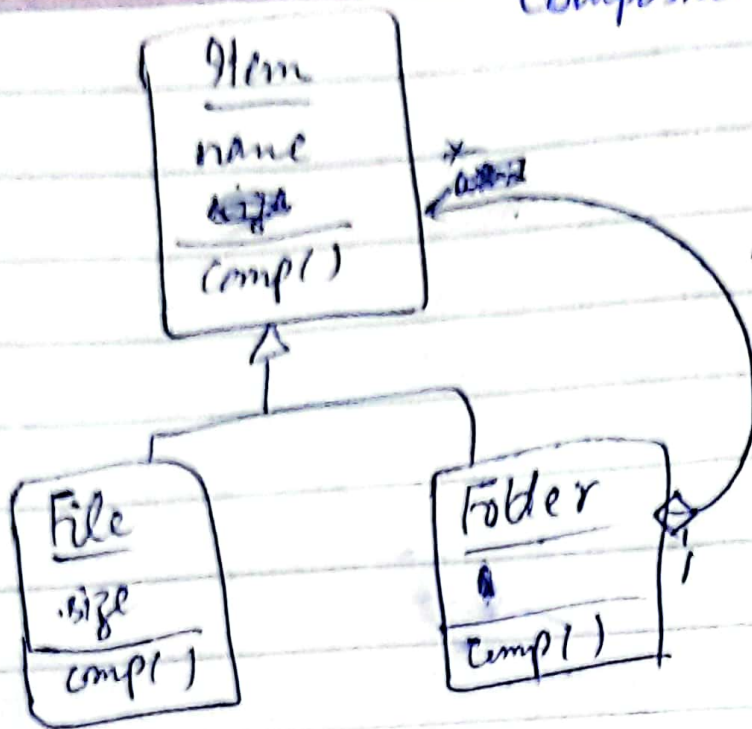 Item
name
comp()
*
File
size
comp()
Folder
comp()
1